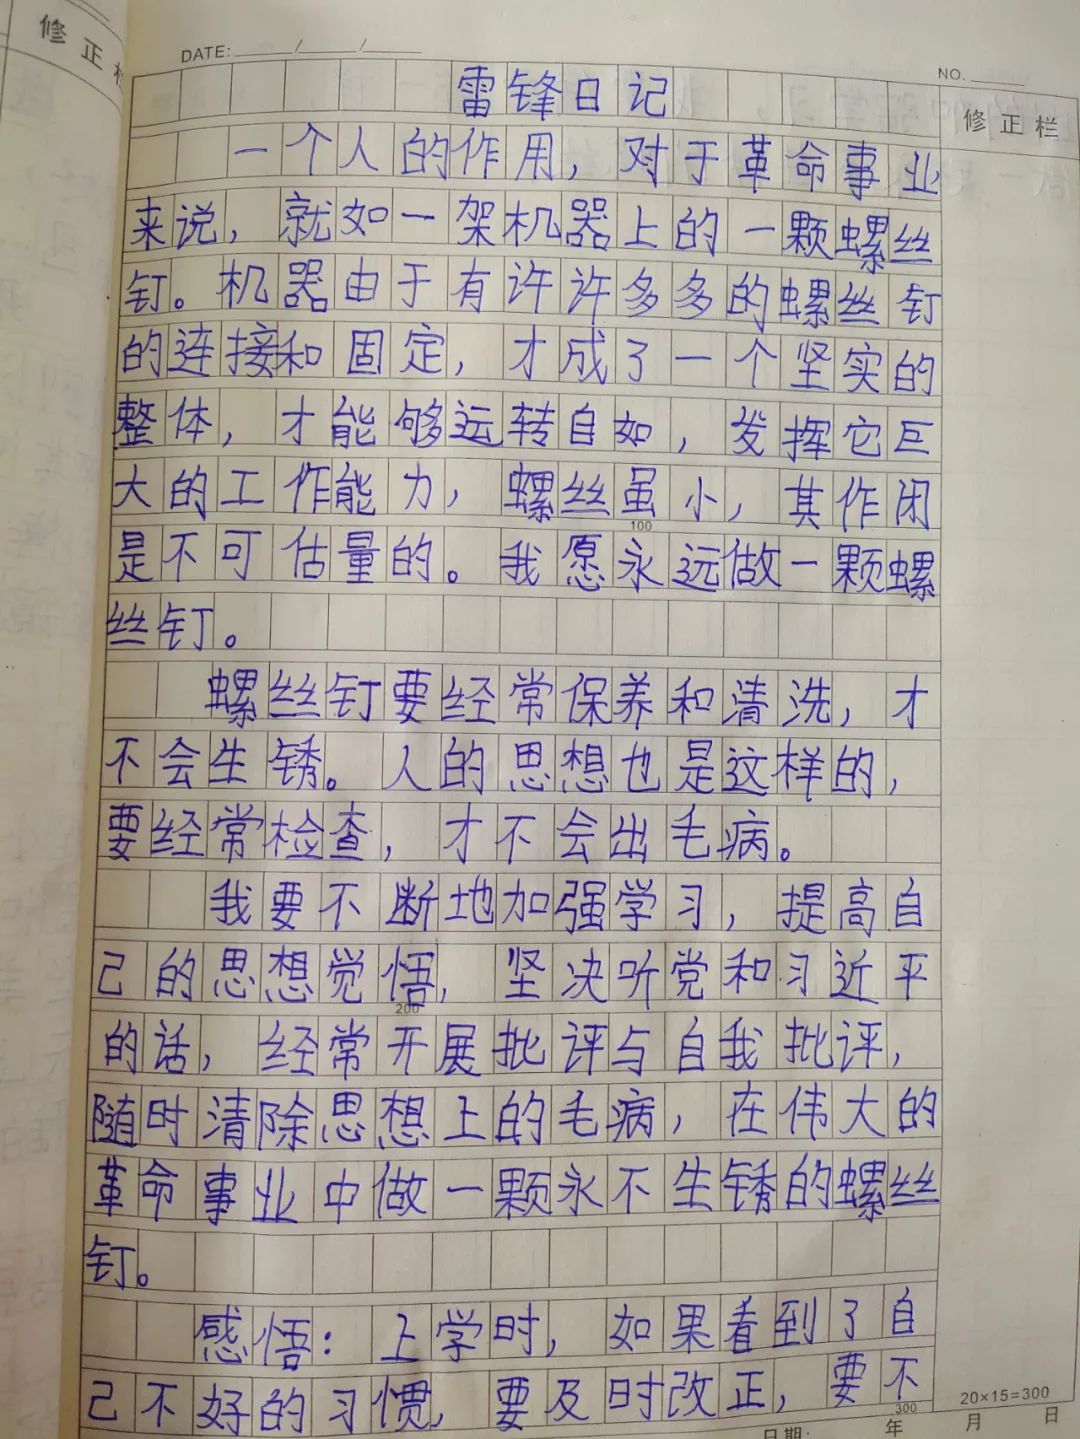 修正栏
DATE: / /
NO.
修正栏
雷锋日记
一个人的作用，对于革命事业
来说，就如一架机器上的一颗螺丝
钉。机器由于有许许多多的螺丝钉
的连接和固定，才成了一个坚实的
整体，才能够运转自如，发挥它巨
大的工作能力，螺丝虽小，其作闭
100
是不可估量的。我愿永远做一颗螺
丝钉。
螺丝钉要经常保养和清洗，才
不会生锈。人的思想也是这样的，
要经常检查，才不会出毛病。
我要不断地加强学习，提高自
己的思想觉悟，坚决听党和习近平
200
的话，经常开展批评与自我批评，
随时清除思想上的毛病，在伟大的
革命事业中做一颗永不生锈的螺丝
钉。
感悟：上学时，如果看到了自
己不好的习惯，要及时改正，要不
300
20×15=300
日期: 年 月 日